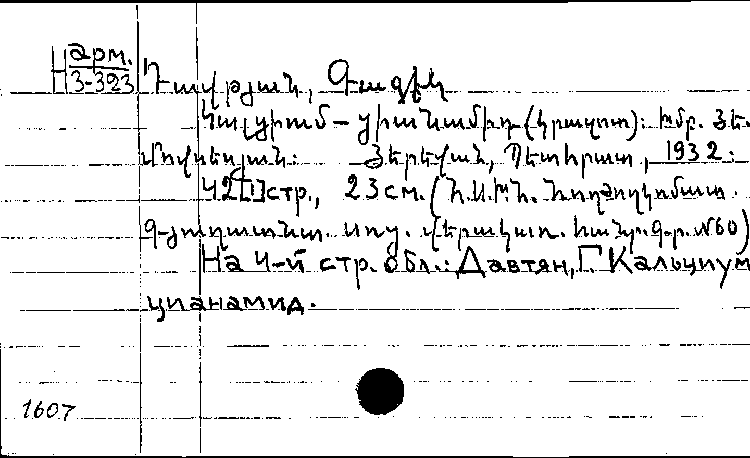 Н арм. 3-323
Դավթյան, Գագիկ
Կալցիում – ցիանամիդ (կրազոտ): Խմբ. Յե.
Մովսեսյան: Յերեվան, Պետհրատ, 1932:
42[1]стр., 23 см. (Հ.Ս.Խ.Հ. Հողժողկոմատ.
Գյուղատնտ. սոց. վերակառ. հանր. գ-ր. №60)
На 4-й стр. обл.: Давтян, Г. Кальциум
цианамид.
1607